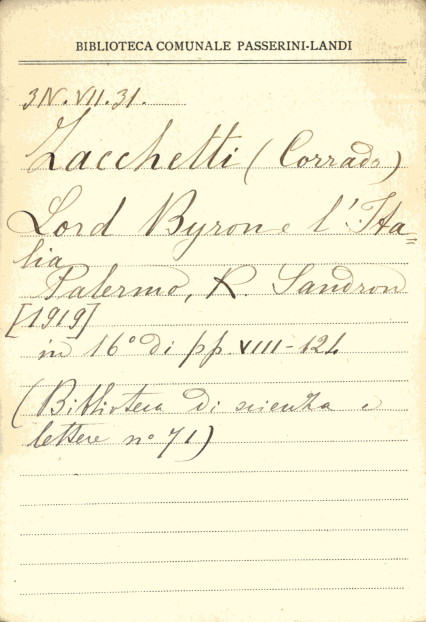 BIBLIOTECA COMUNALE PASSERINI-LANDI
3N.VII.31.
Zacchetti (Corrado)
Lord Byron e l'Ita=
lia
Palermo, R. Sandron
[1919]
in 16° di pp. VIII-124
(Biblioteca di scienza e
lettere n° 71)